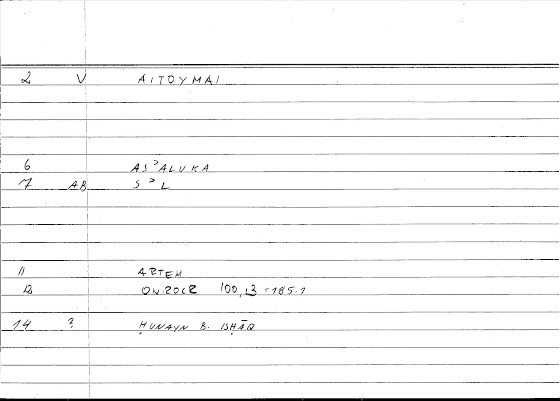 2 V AITOYMAI
6 AS᾿ALUKA
7 AB S᾿L
11 ARTEM.
12 ON.ROCR 100,13 = 185.1
14 ? ḤUNAYN B. ISḤĀQ